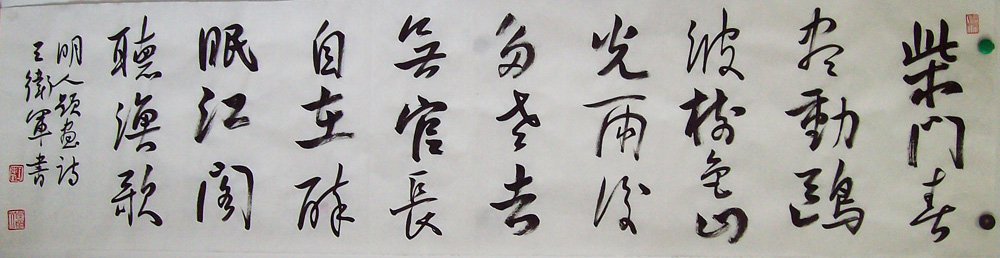 柴門春
尽動鷗
波樹色山
光雨後
多老去
無官長
自在醉
眠江閣
聽漁歌
明人題畫詩
王衛軍書